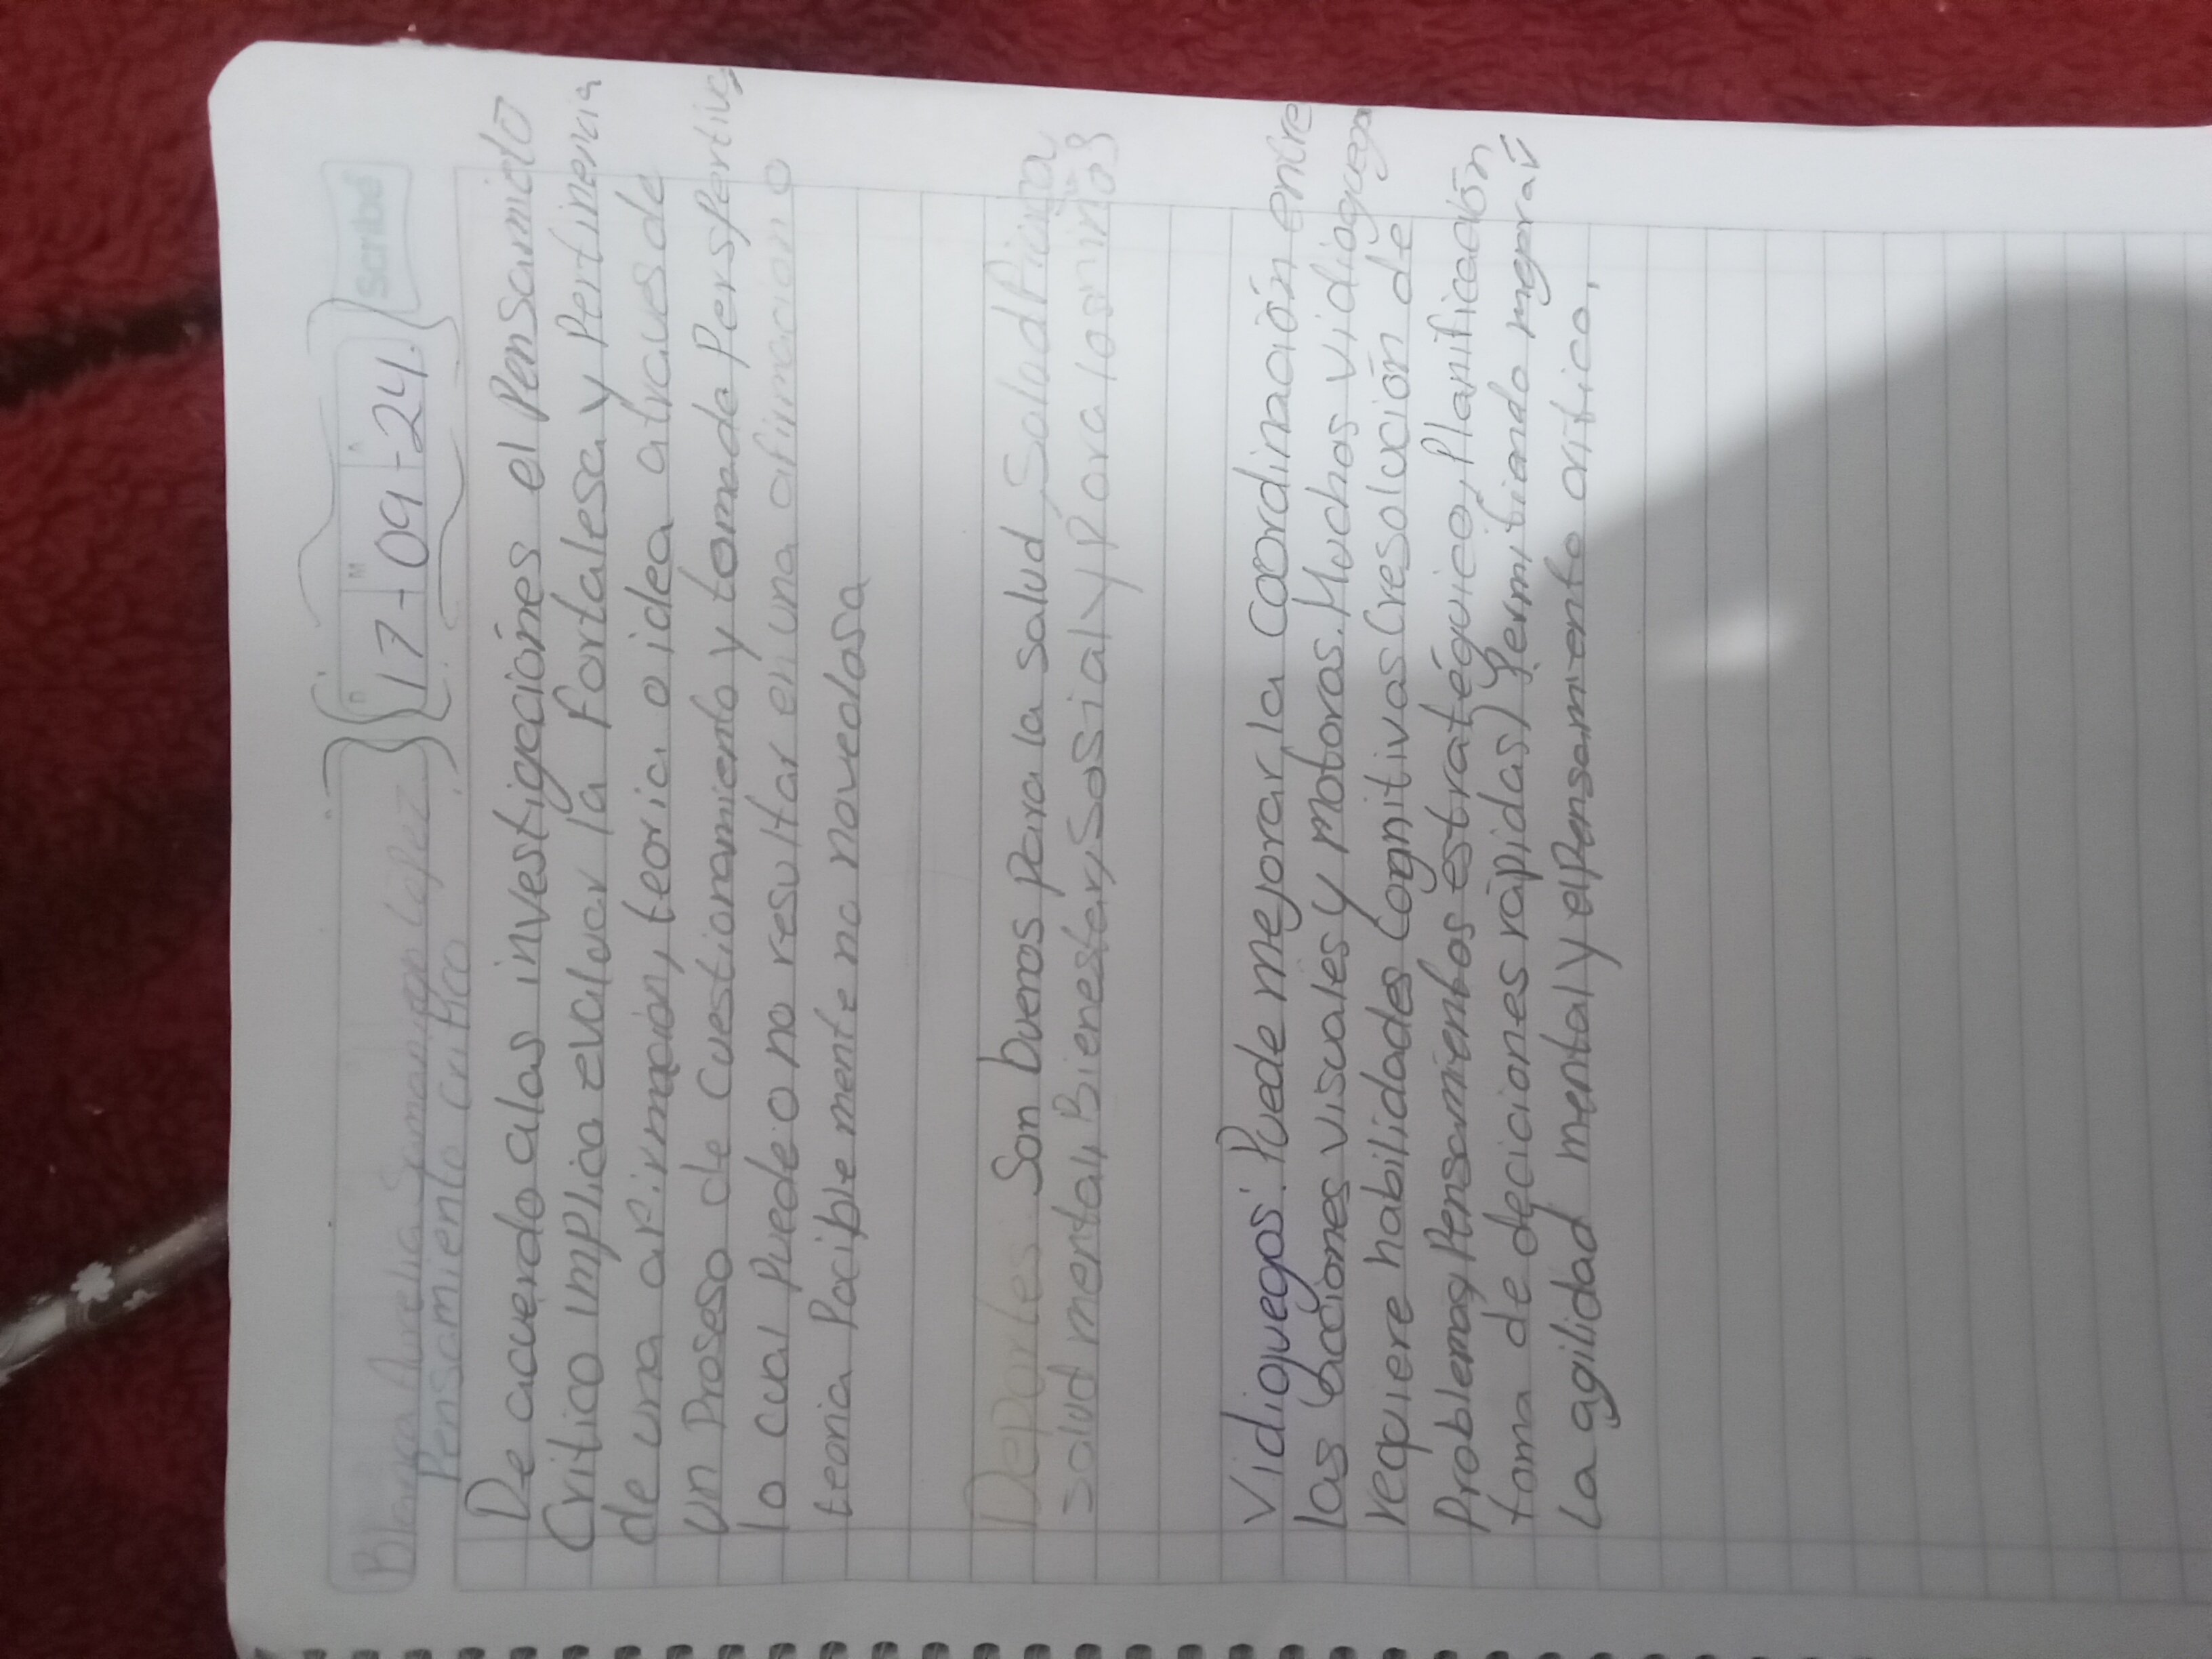 Blanca Aurelia Samaniego López
17-09-24.
Scribe
Pensamiento critico
De acuerdo alas investigaciónes el Pensamieto
Critico implica evaluar la fortalesa y Pertinencia
de una afirmación, teoria o idea atraves de
un Proseso de Cuestionamiento y tomada Perspertiva
lo cual Puede o no resultar en una afirmacion o
teoria Pocible mente no novedosa
Deportes Son buenos para la salud Salud Fisica
salud mental, Bienestar, Sosial y Para las niñas
Vidiojuegos: Puede mejorar la Coordinación entre
las acciones visuales y motoras. Muchos vidiojuegos
requiere habilidades Cognitivas (resolución de
Problemas, Pensamientos estratéguico, Planificación
toma de deciones rápidas) Permitiendo mejorar
La agilidad mental y el Pensamiento critico.